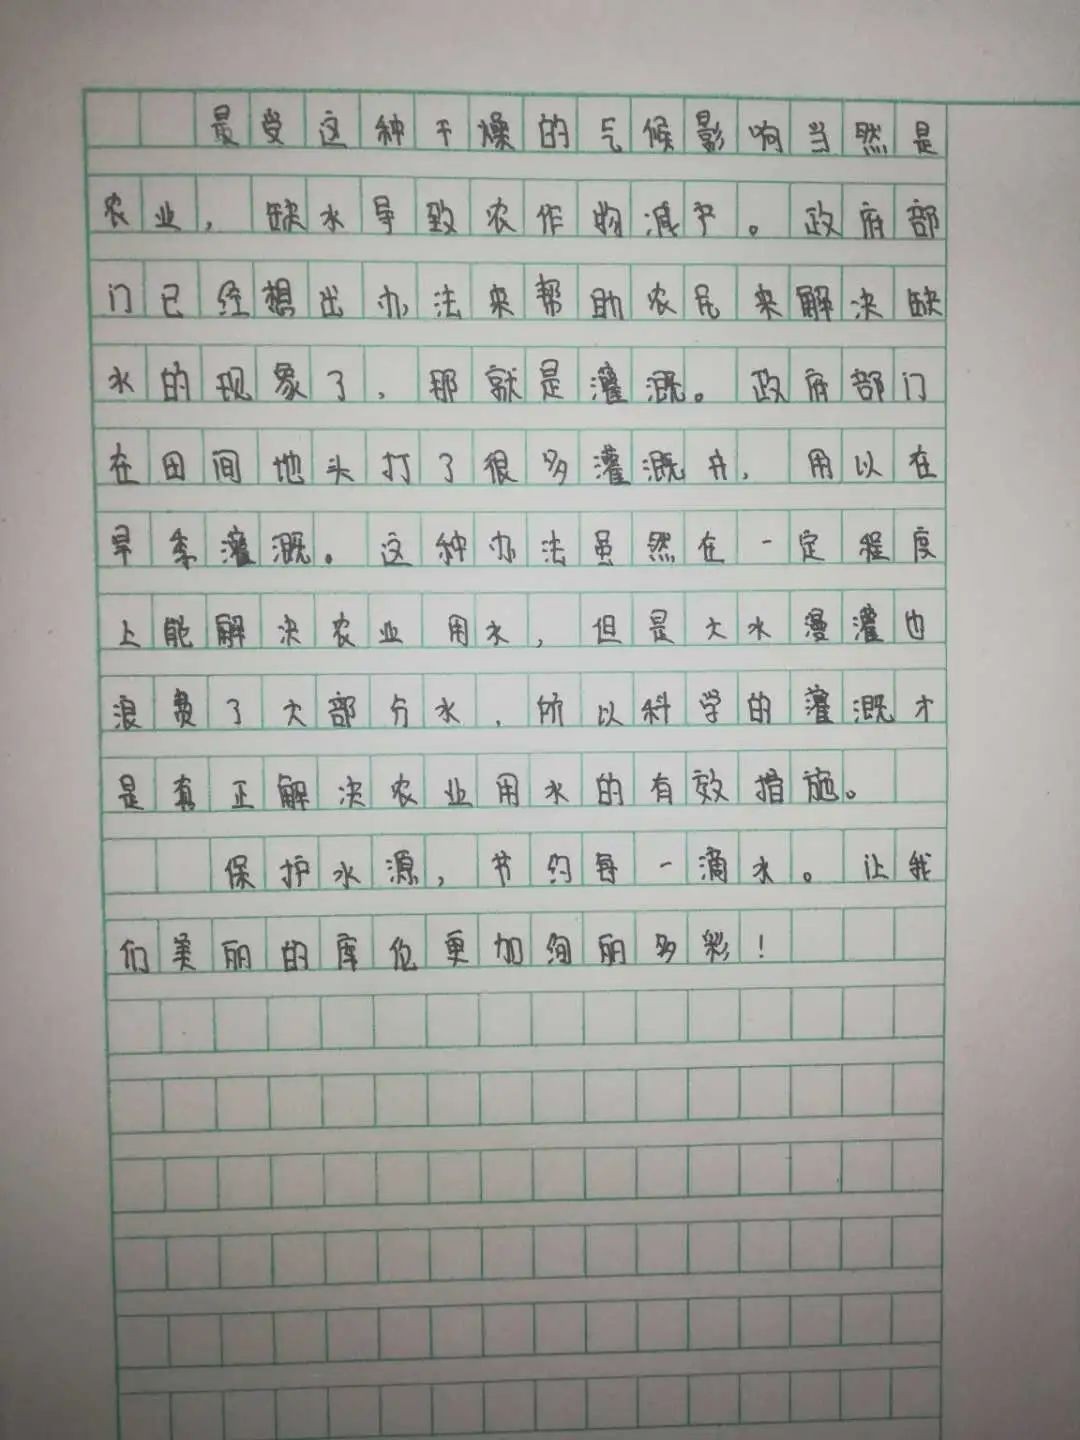 最受这种干燥的气候影响当然是
农业，缺水导致农作物减产。政府部
门已经想出办法来帮助农民来解决缺
水的现象了，那就是灌溉。政府部门
在田间地头打了很多灌溉井，用以在
旱季灌溉。这种办法虽然在一定程度
上能解决农业用水，但是大水漫灌也
浪费了大部分水，所以科学的灌溉才
是真正解决农业用水的有效措施。
保护水源，节约每一滴水。让我
们美丽的库伦更加绚丽多彩！